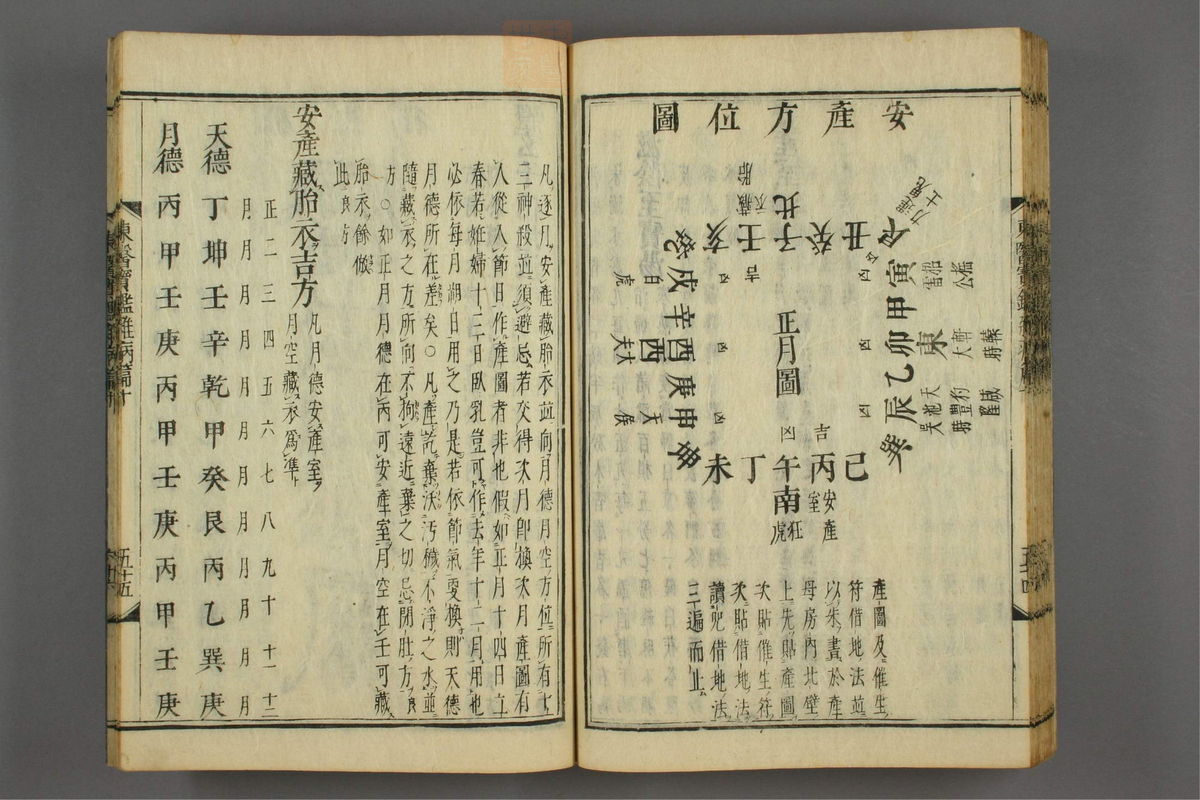 安產方位圖
正月圖
艮寅甲卯乙辰巽
東
巳丙午丁未
安產室
南
狂虎
吉
凶
坤申庚酉辛戌乾
西
白虎
大夫
天候
亥壬子癸丑
北
不藏胎
吉
力士
雷公
招搖
大時
軒轅
天池
吳時
豹尾
產圖及催生
符借地法並
以朱書於產
母房內北壁
上先貼產圖
次貼催生符
次貼借地法
讀呪借地法
三遍而止
東醫寶鑑雜病篇十
凡逐月安產藏胎衣並向月德月空方位所有十
三神殺並須避忌若交得次月節換次月產圖有
人從入節日作產圖者非也假如正月十四日立
春若姙婦十三日臥乳豈可作去年十二月用也
必依每月朔日用之乃是若依節氣更換則天德
月德所在差矣○凡產訖棄沃汚穢不淨之水並
隨藏衣之方所向不拘遠近棄之切忌閉肚方良
方○如正月月德在丙可安產室月空在壬可藏
胎衣餘倣
此良方
安產藏胎衣吉方
凡月德安產室
月空藏衣爲準
正月二月三月四月五月六月七月八月九月十月十一月十二月
天德丁坤壬辛乾甲癸艮丙乙巽庚
月德丙甲壬庚丙甲壬庚丙甲壬庚
東醫寶鑑雜病篇十
五十五